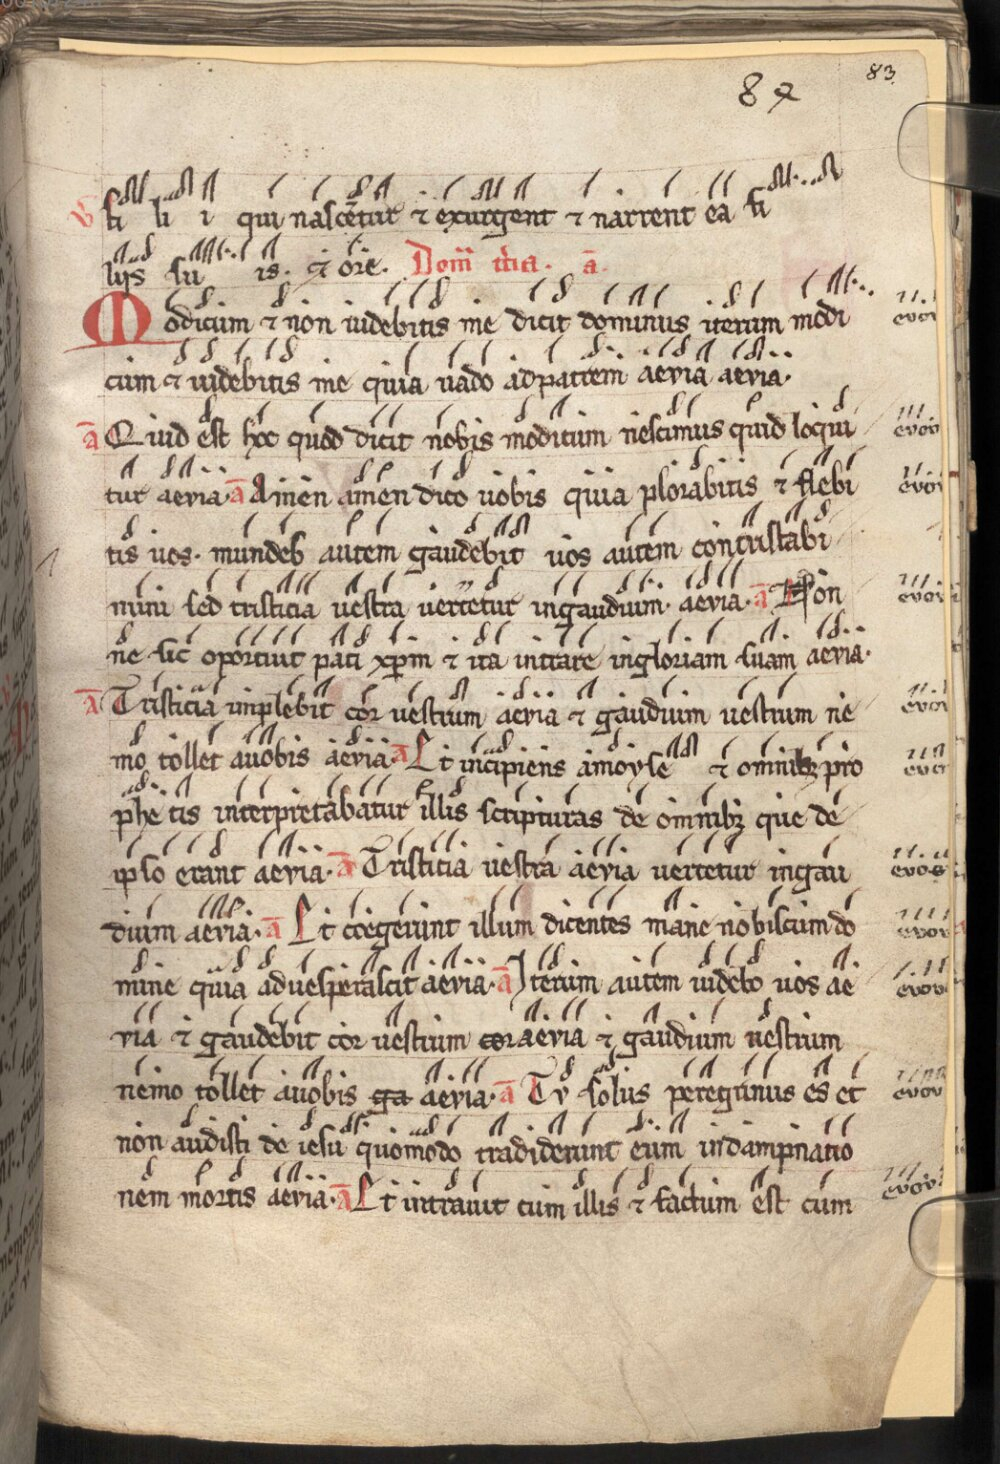 83
87
V fi li i qui nascẽtur ⁊ exurgent ⁊ narrent ea fi
lijs su is. Et ore. Dom̃ t̃cia. a̅
Modicum ⁊ non uidebitis me dicit dominus iterum modi
cum ⁊ uidebitis me quia uado ad patrem aevia aevia.
a̅ Quid est hoc quod dicit nobis modicum nescimus quid loqui
tur aevia. a̅ Amen amen dico uobis quia plorabitis ⁊ flebi
tis uos. mundus autem gaudebit uos autem contristabi
mini sed tristicia uestra uertetur ingaudium. aevia. a̅ Non
ne sic oportuit pati xp̅m ⁊ ita intrare ingloriam suam aevia.
a̅ Tristicia implebit cor uestrum aevia ⁊ gaudium uestrum ne
mo tollet auobis aevia. a̅ Et incipiens amoyse ⁊ omnibꝫ pro
phe tis interpretabatur illis scripturas de omnibꝫ que de
ipso erant aevia. a̅ Tristicia uestra aevia uertetur ingau
dium aevia. a̅ Et coegerunt illum dicentes mane nobiscum do
mine quia aduesperascit aevia. a̅ Iterum autem uidebo uos ae
via ⁊ gaudebit cor uestrum cor aevia ⁊ gaudium uestrum
nemo tollet auobis ga aevia. a̅ Tu solus peregrinus es et
non audisti de iesu quomodo tradiderunt eum indampnatio
nem mortis aevia. a̅ Et intrauit cum illis ⁊ factum est cum